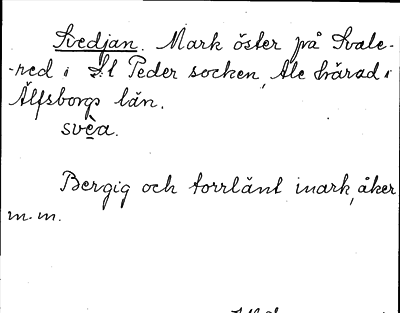 Svedjan. Mark öster på Svale-
-red i S:t Peder socken, Ale härad i
Älfsborgs län.
svèa.
Bergig och torrlänt mark, åker
m.m.